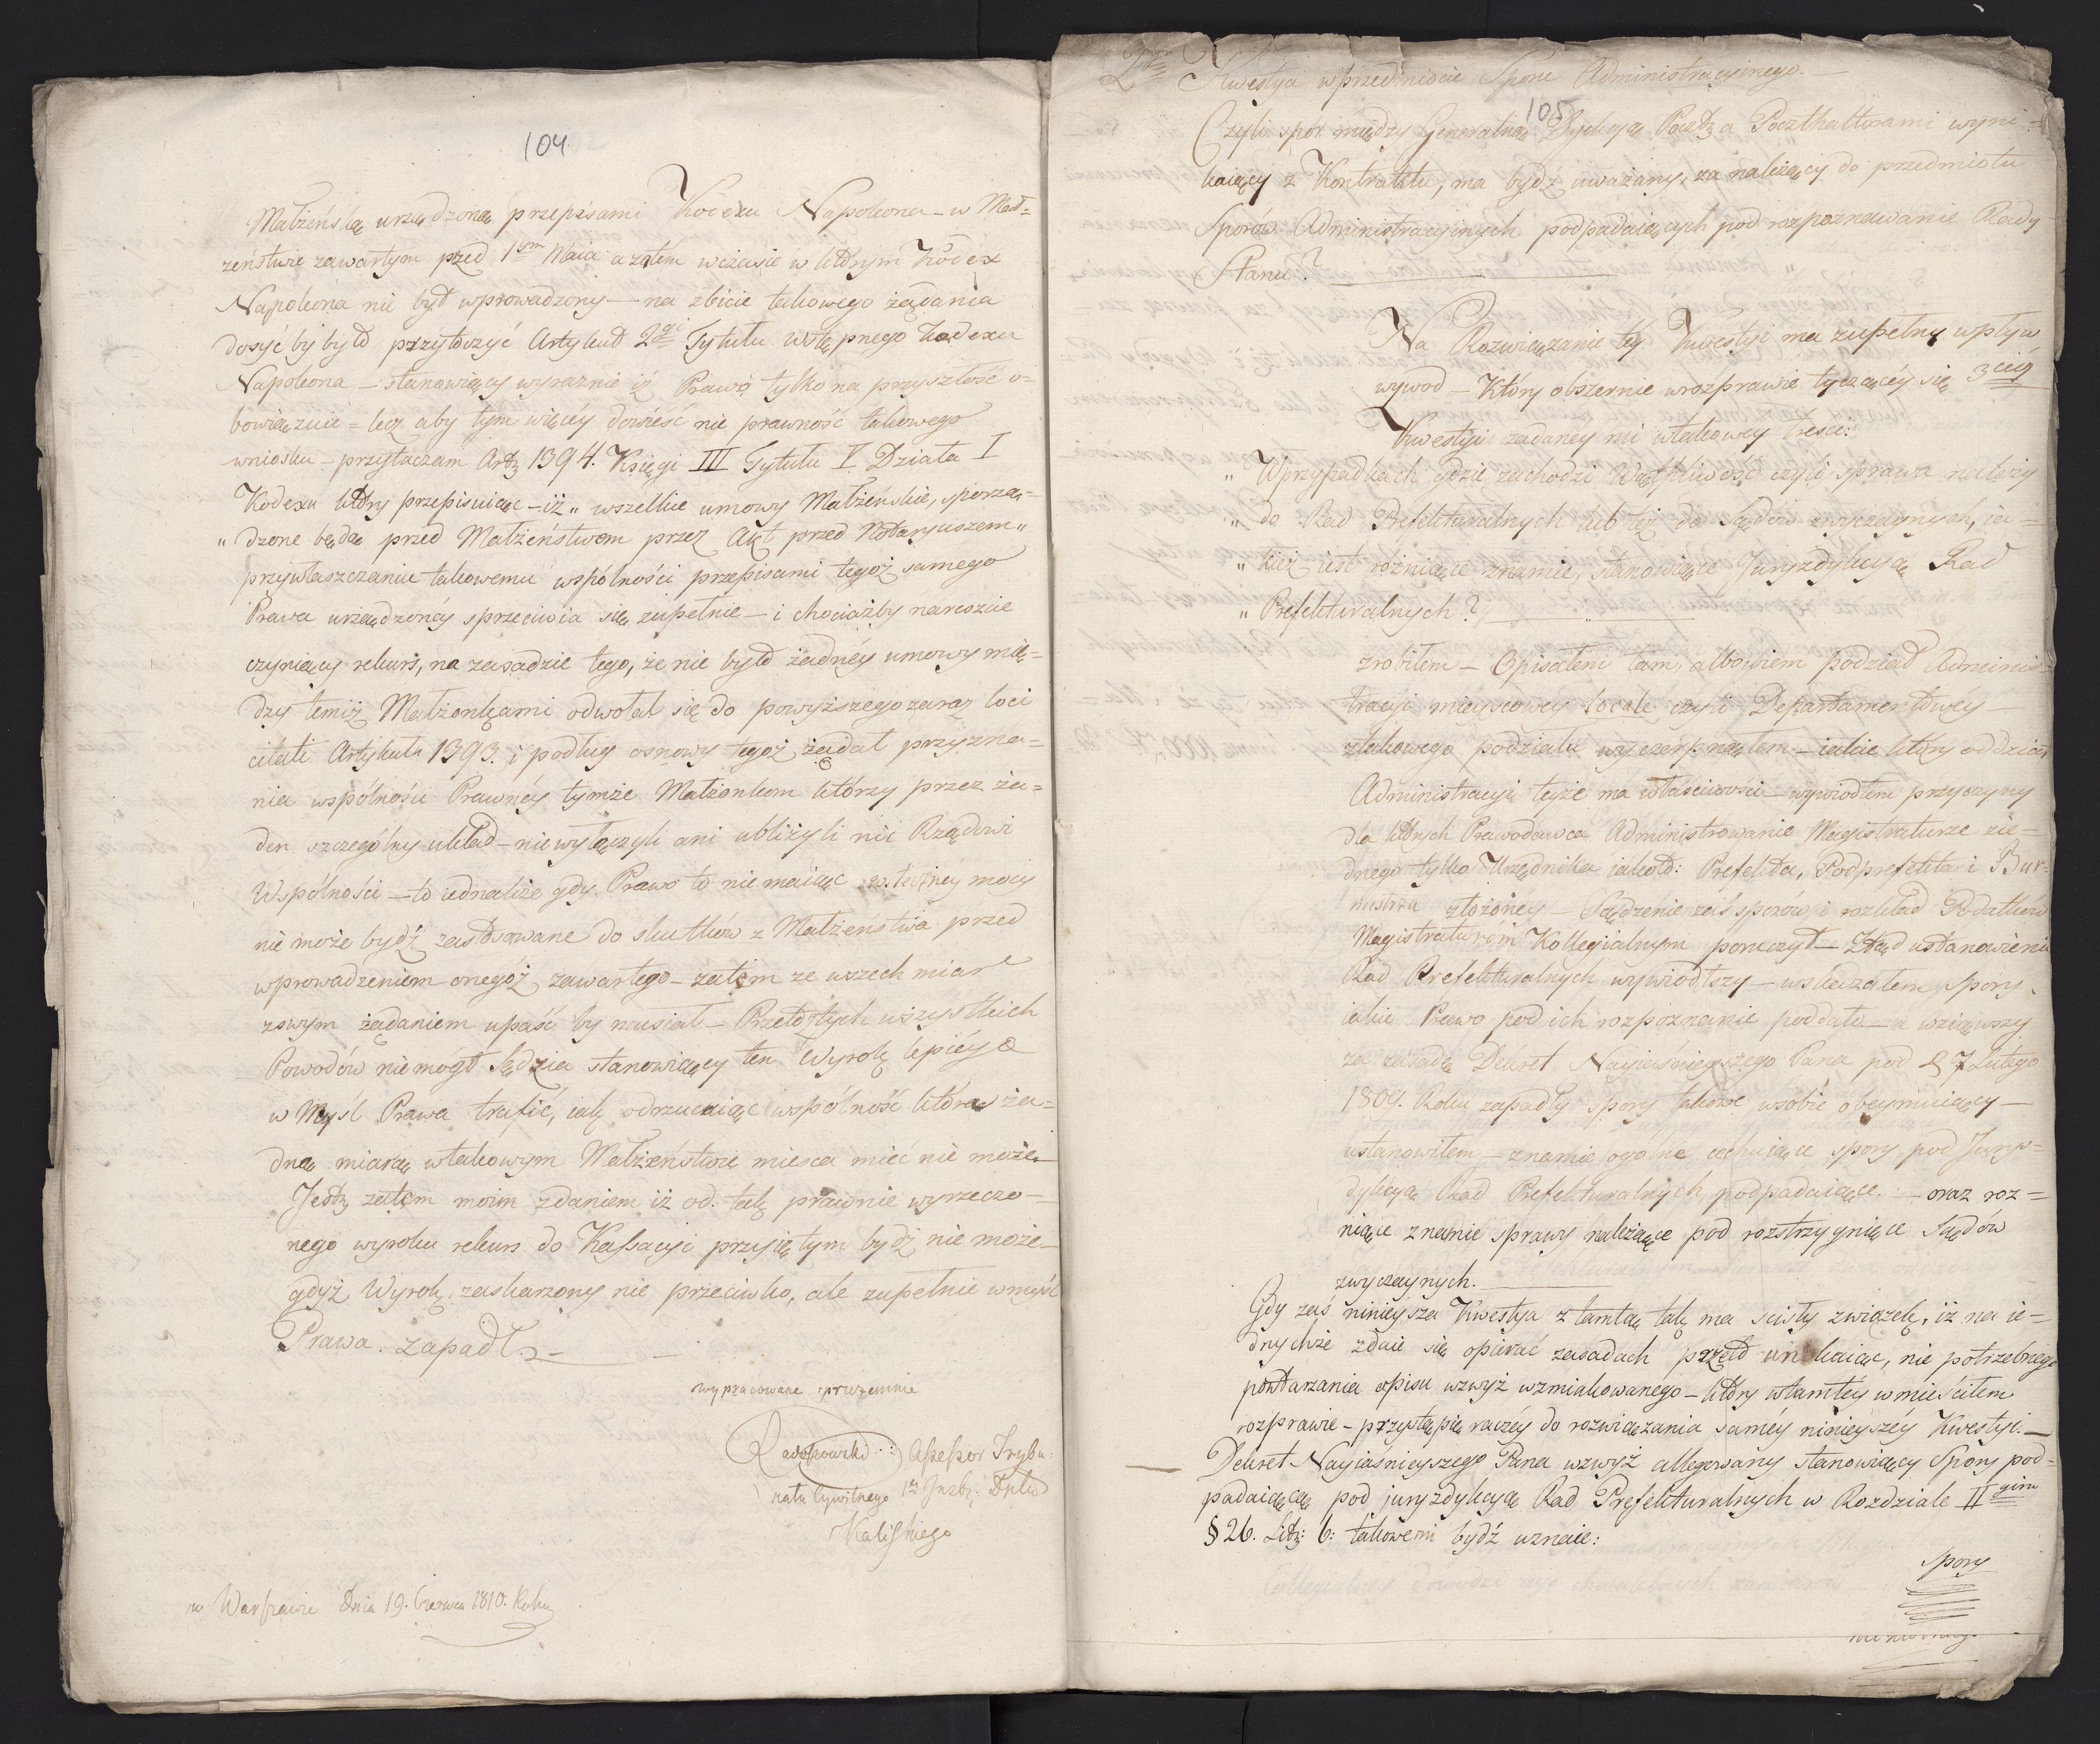 104
Małżeńską urządzoną przepisami Kodexu Napoleona – w Mał=
żeństwie zawartym przed 1ym Maia a zatem wczasie w którym Kodex
Napoleona nie był wprowadzony – na zbicie takowego żądania
dosyć by było przytoczyć Artykuł 2gi Tytułu wstępnego Kodexu
Napoleona – stanowiący wyraznie iż Prawo tylko na przyszłość o=
bowiązuie = lecz aby tym więcéy dowieść nie prawność takowego
wniosku – przytaczam Art 1394. Księgi III Tytułu V Działu I
Kodexu który przepisuiąc – iż „ wszelkie umowy Małżeńskie, sporzą=
„ dzone będą przed Małżeństwem przez Akt przed Notaryuszem „
przywłaszczaniu takowemu wspólności przepisami tegoż samego
Prawa urządzonéy sprzeciwia się zupełnie – i chociażby nareszcie
czyniący rekurs, na zasadzie tego, że nie było żadnéy umowy mię=
dzy temiż Małżonkami odwołał się do powyższego zaraz loci
citati Artykułu 1393. i podług osnowy tegoż żądał przyzna=
nia wspólności Prawnéy tymże Małżonkom którzy przez ża=
den szczególny układ – niewyłączyli ani ubliżyli nic Rządowi
Wspólności – to iednakże gdy Prawo to nie maiąc wsteczney mocy
nie może bydź zastosowane do skutków z Małżeństwa przed
wprowadzeniem onegóż zawartego – zatem ze wszech miar
zswym żądaniem upaść by musiał – Przeto z tych wszystkich
Powodów nie mógł Sędzia stanowiący ten Wyrok lepiéy
w Myśl Prawa trafić, iak odrzucaiąc wspólność która ża=
dną miarą wtakowym Małżeństwie mieisca mieć nie może –
Jest zatem moim zdaniem iż od tak prawnie wyrzeczo=
nego wyroku rekurs do Kassacyi przyiętym bydź nie może –
gdyż Wyrok zaskarzony nie przeciwko, ale zupełnie wmyśl
Prawa zapadł. –
wypracowane przezemnie
Assessor Trybu:
nału Cywilnego 1ey Inst: Dptu
Kaliskiego
w Warszawie Dnia 19. Czerwca 1810. Roku
2 Kwestya wprzedmiocie Sporu Administracyinego. –
105
Czyli spór między Generalną Dyrekcyą Poczt a Poczthalterami wyni=
kaiący z Kontraktu, ma bydź uważany, za należący do przedmiotu
Sporów Administracyinych podpadaiących pod rozpoznawanie Rady
Stanu?
Na Rozwiązanie téy Kwestyi ma zupełny wpływ
wywod – Który obszernie wrozprawie tyczącéy się 3ciéy
Kwestyi zadanéy mi wtakowey treści:
„ Wprzypadkach gdzie zachodzi Wątpliwość czyli sprawa należy
„ do Rad Prefekturalnych lub też do Sądów zwyczaynych, ia=
„ kież iest rożniące znamie, stanowiące Juryzdykcyą Rad
„ Prefekturalnych?
zrobiłem – Opisałem tam albowiem podział Adminis=
tracyi mieyscowey locale czyli Departamentowéy –
ztakowego podziału wyczerpnąłem – iakie który oddział
Administracyi teyże ma właściwości – wywiodłem przyczyny
dla których Prawodawca Administrowanie Magistraturze zie=
dnego tylko Urzędnika iakoto: Prefekta, Podprefekta i Bur=
mistrza złożonéy – Sądzenie zaś sporów i rozkład Podatków
Magistraturom Kollegialnym poruczył – Ztąd ustanowienie
Rad Prefekturalnych wywiodłszy – wskazałem spory,
iakie Prawo pod ich rozpoznanie poddało – a wziąwszy
za zasadę Dekret Nayiaśnieyszego Pana pod 7 Lutego
1809. Roku zapadły spory takowe wsobie obeymuiący –
ustanowiłem – znamie ogólne cechuiące spory pod Jurys=
dykcyą Rad Prefekturalnych podpadaiące. – oraz roz=
niące znamie sprawy należące pod rozstrzygnięcie Sądów
zwyczaynych.
Gdy zaś ninieysza Kwestya z tamtą tak ma ścisły związek, iż na ie=
dnychże zdaie się opierać zasadach przeto unikaiąc, nie potrzebnego
powtarzania opisu wzwyż wzmiakowanego – który wtamtéy umieściłem
rozprawie – przystąpię raczéy do rozwiązania saméy ninieyszéy Kwestyi. –
Dekret Nayiasnieyszego Pana wzwyż allegowany stanowiący Spory pod=
padaiącą pod juryzdykcyą Rad Prefekturalnych w Rozdziale IIgim
§ 26. Litt: b: takowemi bydź uznaie:
spory